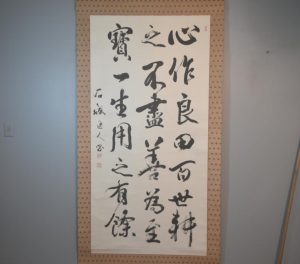 心作良田百世耕
之不盡善為至
寶一生用之有餘
石城逸人書